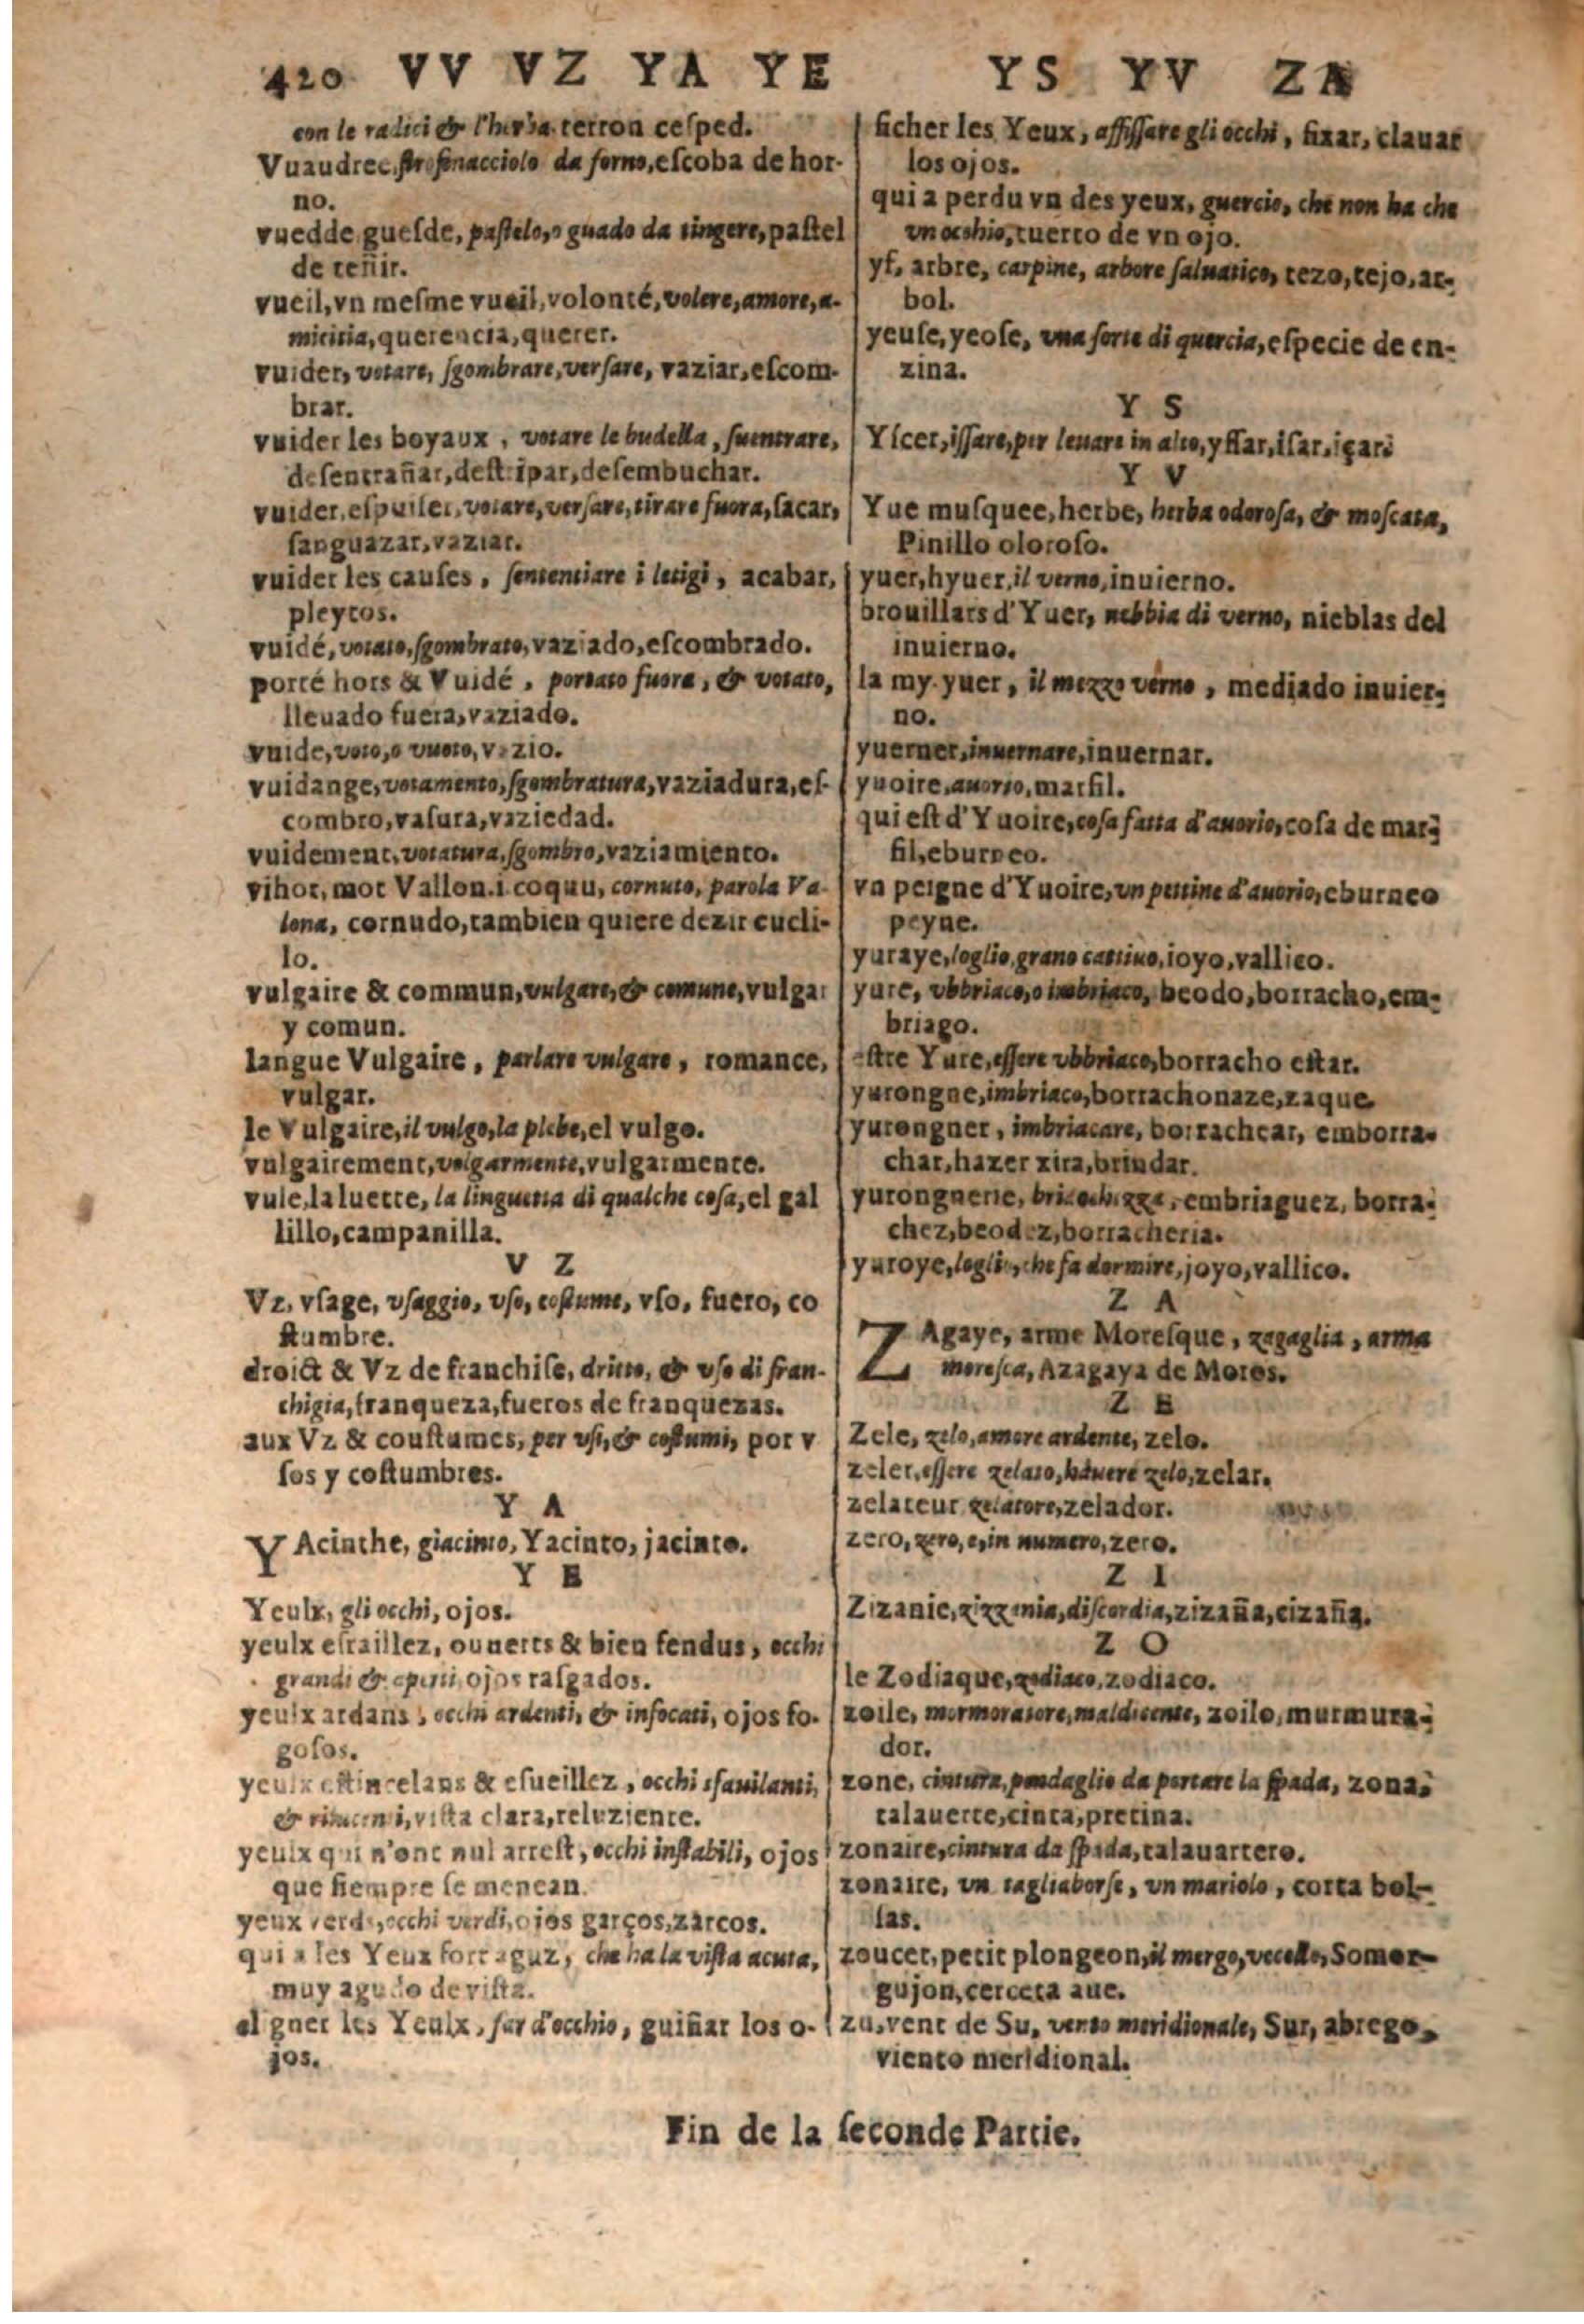 420 VV VZ YA YE YS YV ZA
con le radici & l'herba. terron ceſped.
Vuaudree, ſtrofinacciolo da forno, eſcoba de hor-
no.
vuedde gueſde, paſtelo, o guado da tingere, paſtel
de teñir.
vueil, vn meſme vueil, volonté, volere, amore, a-
micitia, querencia, querer.
vuider, votare, ſgombrare, verſare, vaziar, eſcom-
brar.
vuider les boyaux, votare le budella, ſuentrare,
deſentrañar, deſtripar, deſembuchar.
vuider, eſpuiſer, votare, verſare, tirare fuora, ſacar,
ſanguazar, vaziar.
vuider les cauſes, ſententiare i letigi, acabar,
pleytos.
vuidé, votato, ſgombrato, vaziado, eſcombrado.
porté hors & Vuidé, portato fuora, & votato,
lleuado fuera, vaziado.
vuide, voto, o vuoto, vazio.
vuidange, votamento, ſgombratura, vaziadura, eſ-
combro, vaſura, vaziedad.
vuidement, votatura, ſgombro, vaziamiento.
vihot, mot Vallon. i. coquu, cornuto, parola Va-
lona, cornudo, tambien quiere dezir cucli-
lo.
vulgaire & commun, vulgare, & comune, vulgar
y comun.
langue Vulgaire, parlare vulgare, romance,
vulgar.
le Vulgaire, il vulgo, la plebe, el vulgo.
vulgairement, volgarmente, vulgarmente.
vule, la luette, la linguetta di qualche coſa, el gal
lillo, campanilla.
V Z
Vz, vſage, vſaggio, vſo, coſtume, vſo, fuero, co
ſtumbre.
droict & Vz de franchiſe, dritto, & vſo di fran-
chigia, franqueza, fueros de franquezas.
aux Vz & couſtumes, per vſi, & coſtumi, por v
ſos y coſtumbres.
Y A
YAcinthe, giacinto, Yacinto, jacinto.
Y E
Yeulx, gli occhi, ojos.
yeulx eſraillez, ouuerts & bien fendus, occhi
grandi & aperti, ojos raſgados.
yeulx ardans, occhi ardenti, & infocati, ojos fo-
goſos.
yeulx eſtincelans & eſueillez, occhi sfauilanti,
& rilucenti, viſta clara, reluziente.
yeulx qui n'ont nul arreſt, occhi inſtabili, ojos
que ſiempre ſe menean.
yeux verds, occhi verdi, ojos garços, zarcos.
qui a les Yeux fort aguz, che ha la viſta acuta,
muy agudo de viſta.
cligner les Yeulx, far d'occhio, guiñar los o-
jos.
ficher les Yeux, affiſſare gli occhi, fixar, clauar
los ojos.
qui a perdu vn des yeux, guercio, che non ha che
vn occhio, tuerto de vn ojo.
yf, arbre, carpine, arbore ſaluatico, tezo, tejo, ar-
bol.
yeuſe, yeoſe, vna ſorte di quercia, eſpecie de en-
zina.
Y S
Yſcer, iſſare, per leuare in alto, yſſar, iſar, içar.
Y V
Yue muſquee, herbe, herba odoroſa, & moſcata,
Pinillo oloroſo.
yuer, hyuer, il verno, inuierno.
brouillars d'Yuer, nebbia di verno, nieblas del
inuierno.
la my-yuer, il mezzo verno, mediado inuier-
no.
yuerner, inuernare, inuernar.
yuoire, auorio, marfil.
qui eſt d'Yuoire, coſa fatta d'auorio, coſa de mar-
fil, eburneo.
vn peigne d'Yuoire, vn pettine d'auorio, eburneo
peyne.
yuraye, loglio, grano cattiuo, ioyo, vallico.
yure, vbbriaco, o imbriaco, beodo, borracho, em-
briago.
eſtre Yure, eſſere vbbriaco, borracho eſtar.
yurongne, imbriaco, borrachonaze, zaque.
yurongner, imbriacare, borrachear, emborra-
char, hazer xira, brindar.
yurongnerie, embriaguez, borra-
chez, beodez, borracheria.
yuroye, loglio, che fa dormire, joyo, vallico.
Z A
ZAgaye, arme Moreſque, zagaglia, arma
moreſca, Azagaya de Moros.
Z E
Zele, zelo, amore ardente, zelo.
zeler, eſſere zelato, hauere zelo, zelar.
zelateur zelatore, zelador.
zero, zero, e, in numero, zero.
Z I
Zizanie, zizzania, diſcordia, zizaña, cizaña.
Z O
le Zodiaque, zodiaco, zodiaco.
zoile, mormoratore, maldicente, zoilo, murmura-
dor.
zone, cintura, pendaglio da portare la ſpada, zona,
talauerte, cinta, pretina.
zonaire, cintura da ſpada, talauartero.
zonaire, vn tagliaborſe, vn mariolo, corta bol-
ſas.
zoucet, petit plongeon, il mergo, vccello, Somor-
gujon, cerceta aue.
zu, vent de Su, vento meridionale, Sur, abrego,
viento meridional.
Fin de la ſeconde Partie.